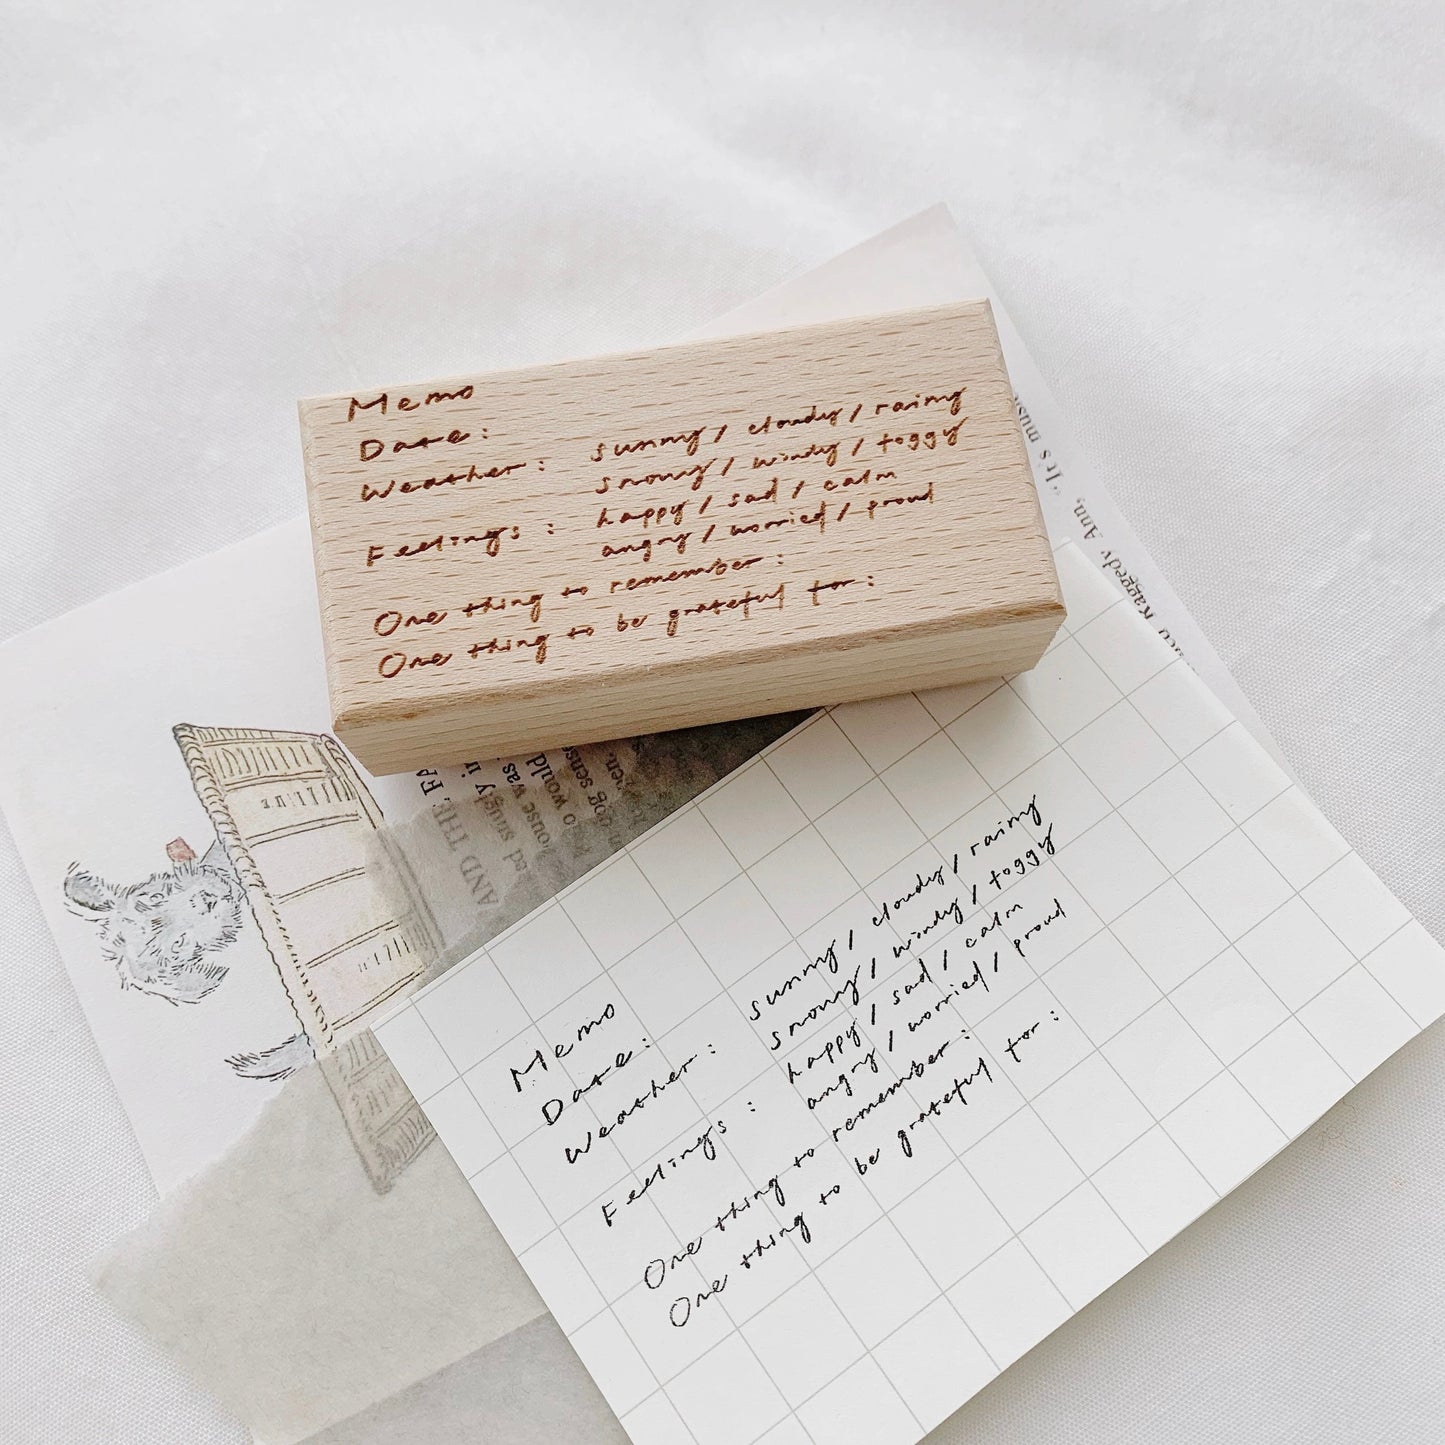 Memo
Date:
Weather: sunny / cloudy / rainy
snowy / windy / foggy
Feelings: happy / sad / calm
angry / worried / proud
One thing to remember:
One thing to be grateful for:
"It's music
Raggedy Ann,
AND THE FA
snugly in
house was
o would
dog sense
Memo
Date:
Weather: sunny / cloudy / rainy
snowy / windy / foggy
Feelings: happy / sad / calm
angry / worried / proud
One thing to remember:
One thing to be grateful for: